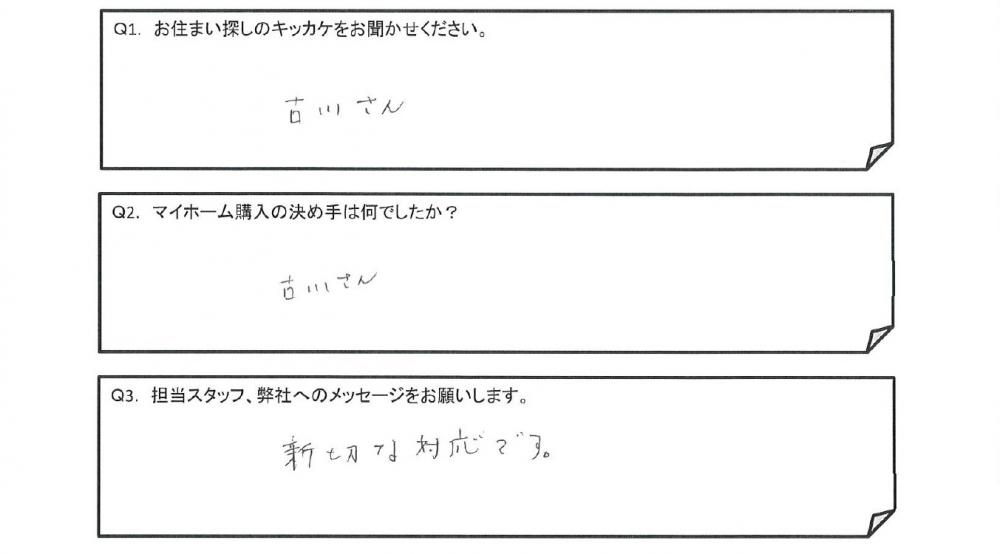 Q1. お住まい探しのキッカケをお聞かせください。
古川さん
Q2. マイホーム購入の決め手は何でしたか？
古川さん
Q3. 担当スタッフ、弊社へのメッセージをお願いします。
新切な対応です。